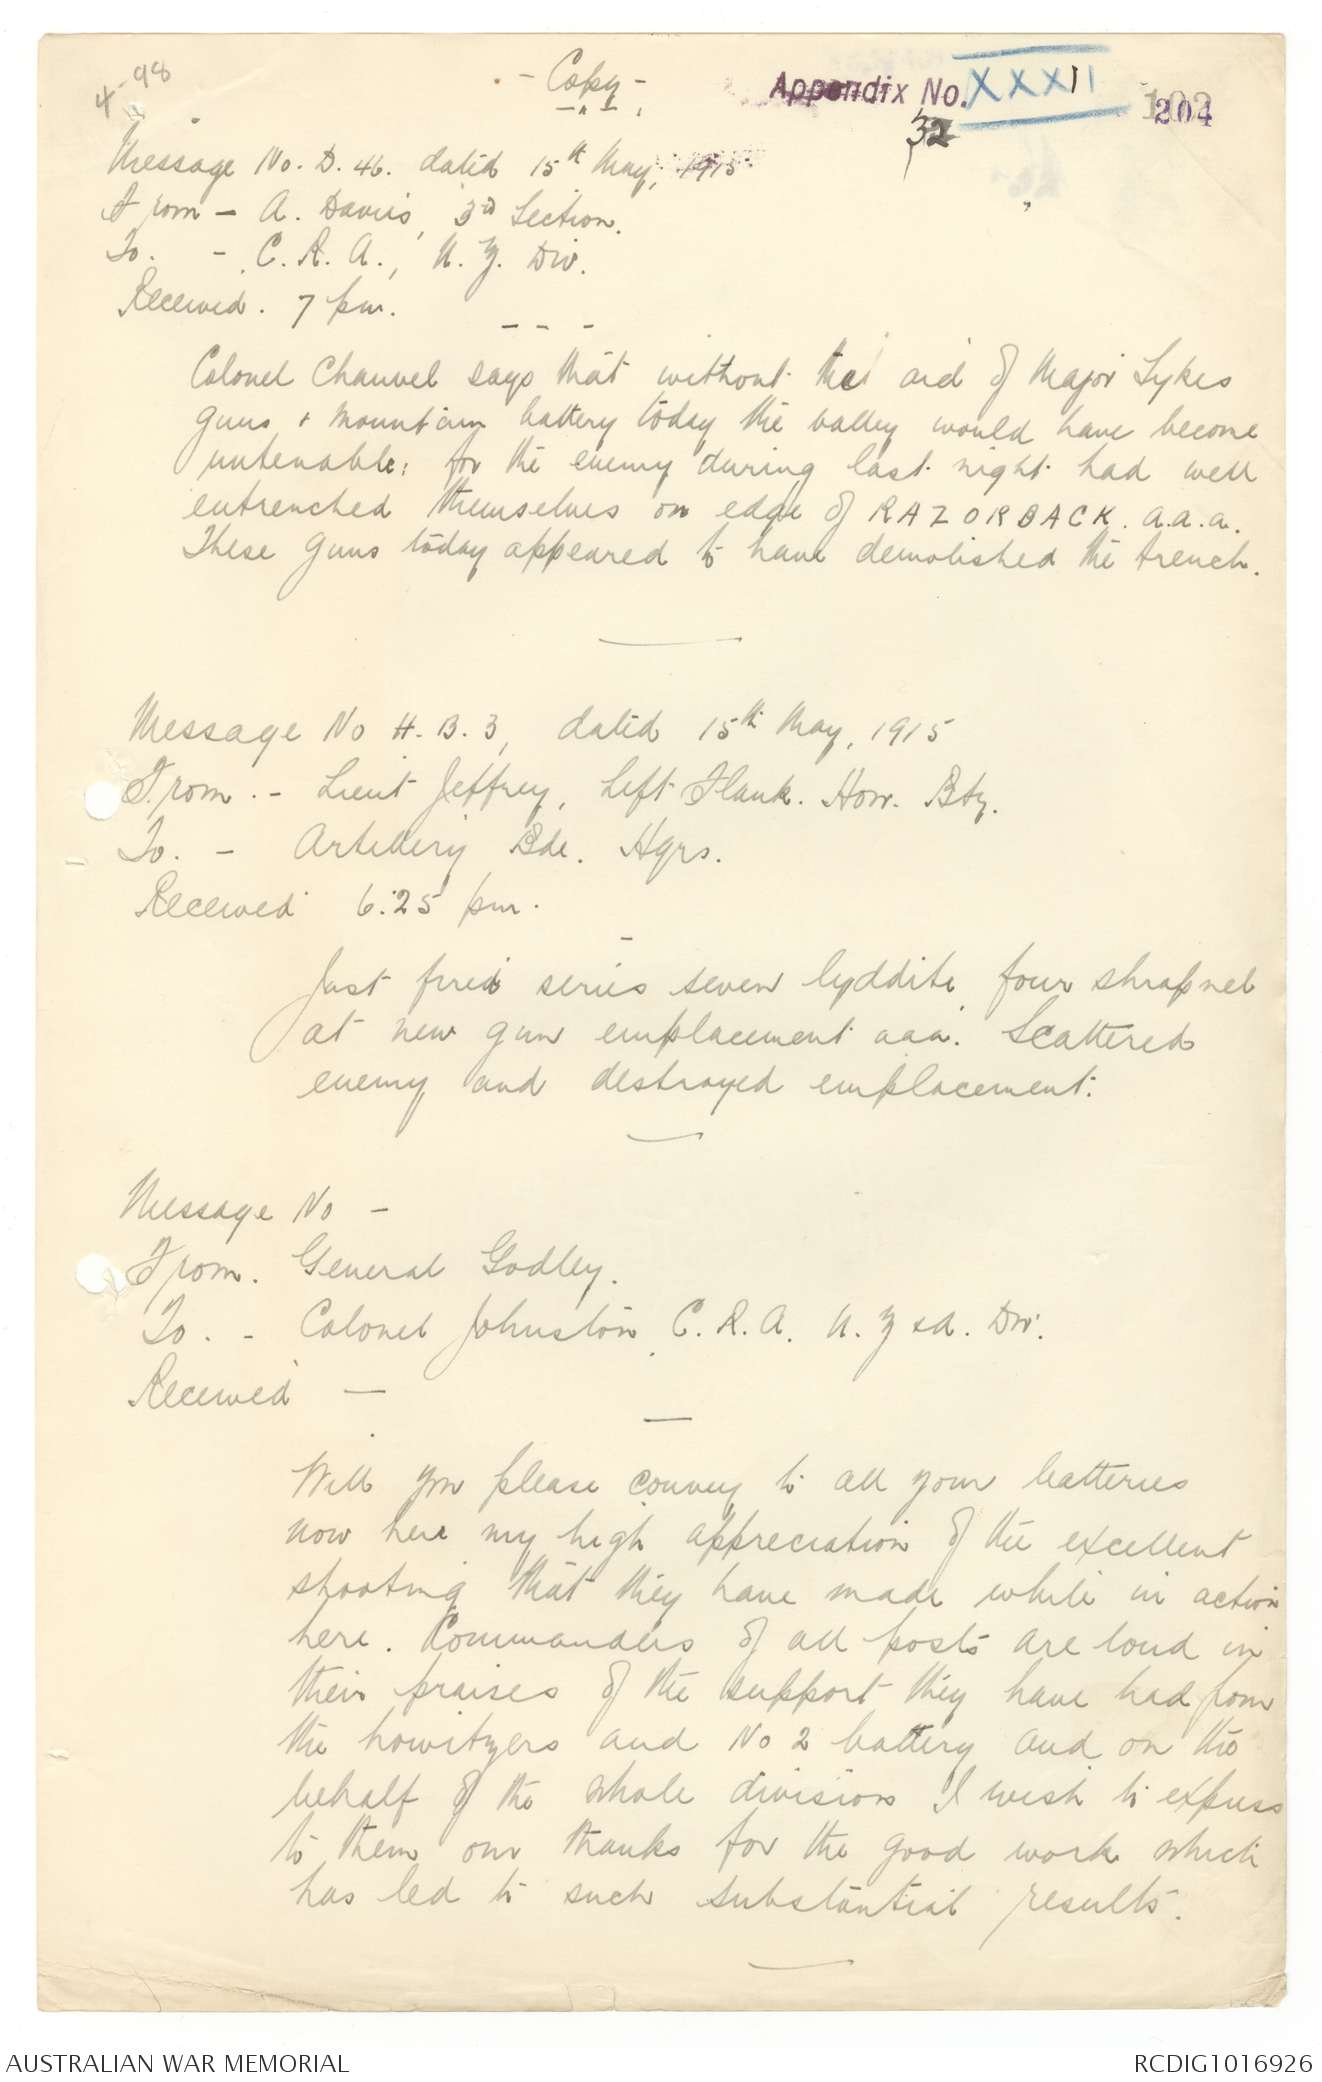 4-98
- Copy -
Appendix No. XXXII
204
32
Message No. D. 46. dated 15th May, 1915
From - A. Davies, 3rd Section.
To. - C. R. A., N. Z. Div.
Received. 7 pm.
Colonel Chauvel says that without the aid of Major Sykes
guns & mountain battery today the valley would have become
untenable: for the enemy during last night had well
entrenched themselves on edge of RAZORBACK. a.a.a.
These guns today appeared to have demolished the trench.
Message No H. B. 3, dated 15th May, 1915
From. - Lieut Jeffrey, Left Flank. How. Bty.
To. - Artillery Bde. Hqrs.
Received 6.25 pm.
Just fired series seven lyddite, four shrapnel
at new gun emplacement aaa. Scattered
enemy and destroyed emplacement.
Message No -
From. General Godley.
To. - Colonel Johnston, C. R. A. N. Z & A. Div.
Received -
Will you please convey to all your batteries
now here my high appreciation of the excellent
shooting that they have made while in action
here. Commanders of all posts are loud in
their praises of the support they have had from
the howitzers and No 2 battery and on the
behalf of the whole division I wish to express
to them our thanks for the good work which
has led to such substantial results.
AUSTRALIAN WAR MEMORIAL
RCDIG1016926